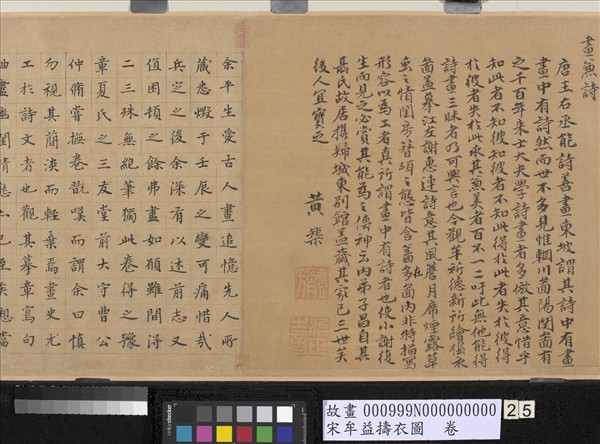 畫兼詩
唐王右丞能詩善畫東坡謂其詩中有畫
畫中有詩然而世不多見惟輞川啚陽関啚有
之千百年来士大夫學詩畫者多倣其意惜乎
知此者不知彼知彼者不知此得於此者失於彼得
於彼者失於此求其兼美者百不一二吁此無他能得
詩畫三昧者乃可與言也今觀牟祈德新所繪擣衣
啚蓋摹江左謝惠連詩意其風簷月席煙露草
虫之情閨房簪珥之態皆含蓄在啚內非特描寫
形容以為工者真所謂畫中有詩者也使小謝復
生而見之必賞其能為之傳神云內弟子昌自其
聶氏故居攜歸城東別館蓋藏其家已三世矣
後人宜寶之
黄
余平生愛古人畫追憶先人所
藏悉燬于壬辰之變可痛惜哉
兵之後余深有以述前志又
值困頓之餘弗盡如願雖間得
二三殊無絕筆獨此卷得之豫
章夏氏之三友堂前大守曹公
仲脩甞撫卷嘆而謂余曰慎
勿視其簡淡而輕棄焉畫史尤
工於詩文者也觀其摹章寫句
故畫 000999N000000000 25
宋牟益擣衣圖 卷